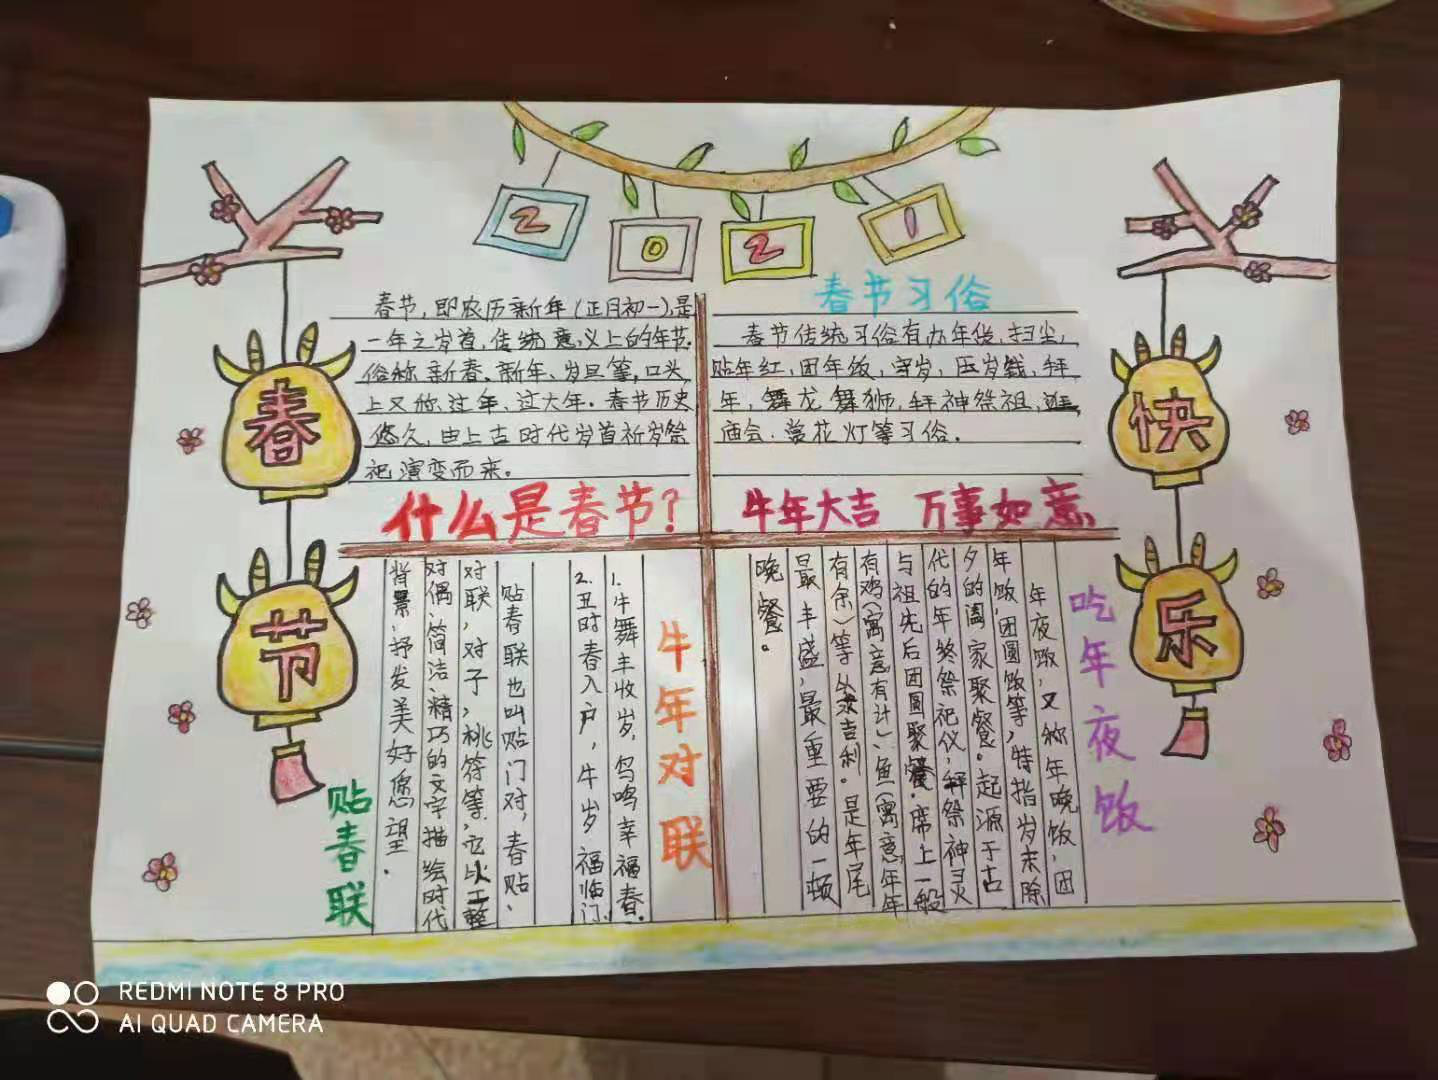 2021
春
节
快
乐
春节，即农历新年（正月初一），是
一年之岁首，传统意义上的年节。
俗称新春、新年、岁旦等，口头
上又称过年、过大年。春节历史
悠久，由上古时代岁首祈岁祭
祀演变而来。
什么是春节？
春节习俗
春节传统习俗有办年货、扫尘，
贴年红，团年饭，守岁，压岁钱，拜
年，舞龙舞狮，拜神祭祖，逛
庙会、赏花灯等习俗。
牛年大吉 万事如意
牛年对联
1.牛舞丰收岁，鸟鸣幸福春。
2.丑时春入户，牛岁福临门。
贴春联也叫贴门对，春贴、
对联，对子，桃符等，它以工整
对偶、简洁、精巧的文字描绘时代
背景、抒发美好愿望.
贴春联
吃年夜饭
年夜饭，又称年晚饭，团
年饭，团圆饭等，特指岁末除
夕的阖家聚餐。起源于古
代的年终祭祀仪，拜祭神灵
与祖先后团圆聚餐。席上一般
有鸡（寓意有计）、鱼（寓意年年
有余）等求吉利。是年尾
最丰盛，最重要的一顿
晚餐。
REDMI NOTE 8 PRO
AI QUAD CAMERA